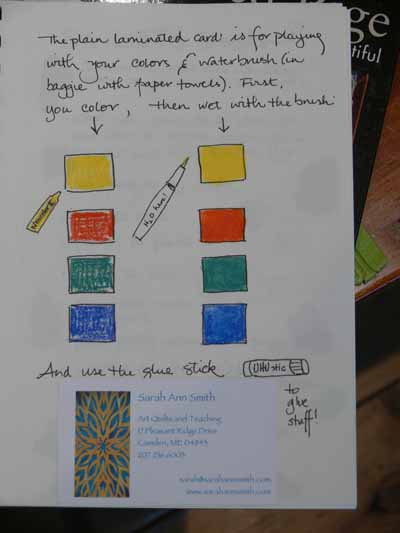 The plain laminated card is for playing
with your colors & waterbrush (in
baggie with paper towels). First,
you color, then wet with the brush.
H2O here!
And use the glue stick
UHUstic
to
glue
stuff!
Sarah Ann Smith
Art Quilts and Teaching
17 Pleasant Ridge Drive
Camden, ME 04843
207.236.6003
sarah@sarahannsmith.com
www.sarahannsmith.com
ge
tiful